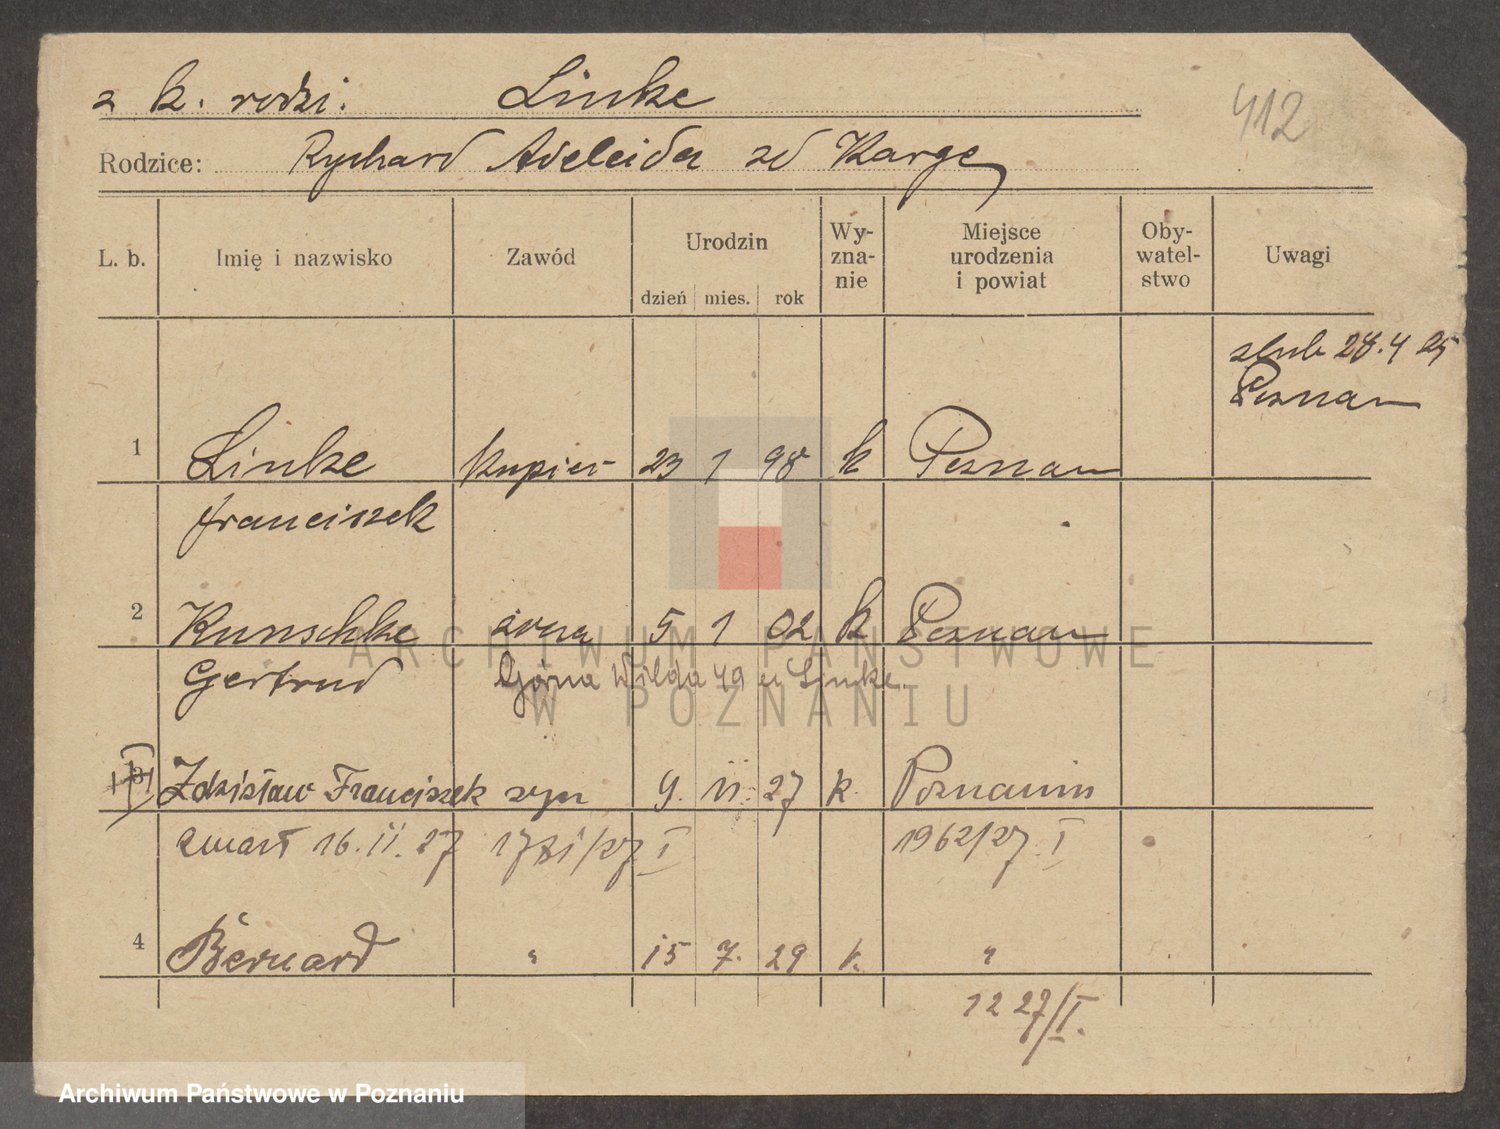 z k. rodzi. Linke
412
Rodzice: Rychard Adeleida zd Karge
L. b. Imię i nazwisko Zawód Urodzin dzień mies. rok Wy-zna-nie Miejsce urodzenia i powiat Oby-watel-stwo Uwagi
ślub 28.4 25
Poznan
1 Linke kupiec 23 1 98 k Poznan
Franciszek
2 Kunschke żona 5 1 02 k Poznan
Gertrud Górna Wilda 49 u Linke.
3 Zdzisław Franciszek syn 9. II. 27 k. Poznaniu
zmarł 16. II. 27 1731/27 I 1962/27 I
4 Bernard " 15 7. 29 k. "
1227/I.
ARCHIWUM PAŃSTWOWE
W POZNANIU
Archiwum Państwowe w Poznaniu